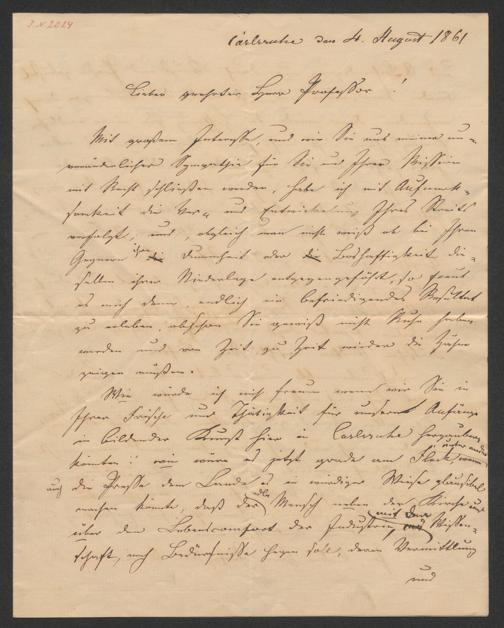 J.N. 2024
Carlsruhe den 4. August 1861
Lieber geehrter Herr Professor!
Mit großem Interesse, und wie Sie aus meiner un-
veränderlichen Sympathie für Sie und Ihre Mission
mit Recht schließen werden, habe ich mit Aufmerk-
samkeit die Ver- und Entwickelung Ihres Streits
verfolgt, und, obgleich man nicht weiß ob bei Ihren
Gegnern ihre Dummheit oder die Boshaftigkeit die-
selben ihrer Niederlage entgegengeführt, so freut
es mich denn endlich ein befriedigendes Resultat
zu erleben, obschon Sie gewiß nicht Ruhe haben
werden und von Zeit zu Zeit wieder die Zähne
zeigen müssen.
Wie würde ich mich freuen wenn wir Sie in
Ihrer Frische und Thätigkeit für unsere Anfänge
in bildender Kunst hier in Carlsruhe herzaubern
könnten! wie wäre es jetzt grade am Fleck
auch die Presse dem Lande es in würdiger Weise
machen könnte, daß der Mensch neben der Kirche und
über den Lebenscomfort der Industrie, mit der Wissen-
schaft, noch Bedürfnisse hegen soll, deren Vermittlung
und